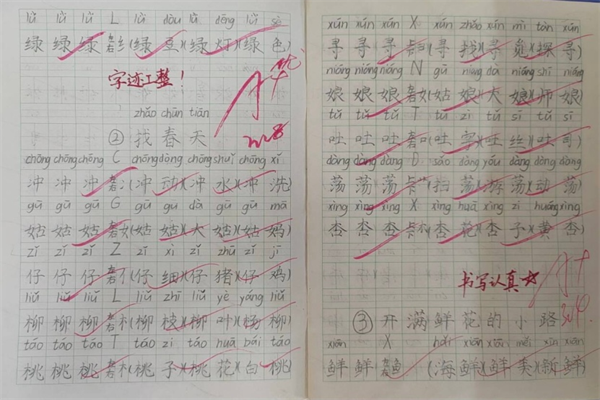 lǜ lǜ lǜ L lǜ dòu lǜ dēng lǜ sè
绿 绿 绿 (绿 豆)(绿 灯)(绿 色)
字迹工整!
zhǎo chūn tiān
② 找 春 天
chōng chōng chōng C chōng dòng chōng shuǐ chōng xǐ
冲 冲 冲 (冲 动)(冲 水)(冲 洗)
gū gū gū G gū gu dà gū gū mā
姑 姑 姑 (姑 姑)(大 姑)(姑 妈)
zǐ zǐ zǐ Z zǐ xì zǐ zhū zǐ jī
仔 仔 仔 (仔 细)(仔 猪)(仔 鸡)
liǔ liǔ liǔ L liǔ zhī liǔ yè yáng liǔ
柳 柳 柳 (柳 枝)(柳 叶)(杨 柳)
táo táo táo T táo zi táo huā bái táo
桃 桃 桃 (桃 子)(桃 花)(白 桃)
xún xún xún X xún zhǎo xún mì tàn xún
寻 寻 寻 (寻 找)(寻 觅)(探 寻)
niáng niáng niáng N gū niáng dà niáng shī niáng
娘 娘 娘 (姑 娘)(大 娘)(师 娘)
吐 吐 吐
dàng dàng dàng D sǎo dàng yóu dàng dòng dàng
荡 荡 荡 (扫 荡)(游 荡)(动 荡)
xìng xìng xìng X xìng huā xìng zi huáng xìng
杏 杏 杏 (杏 花)(杏 子)(黄 杏)
书写认真☆
③ 开 满 鲜 花 的 小 路
鲜 鲜 鲜 (海 鲜)(鲜 美)(新 鲜)